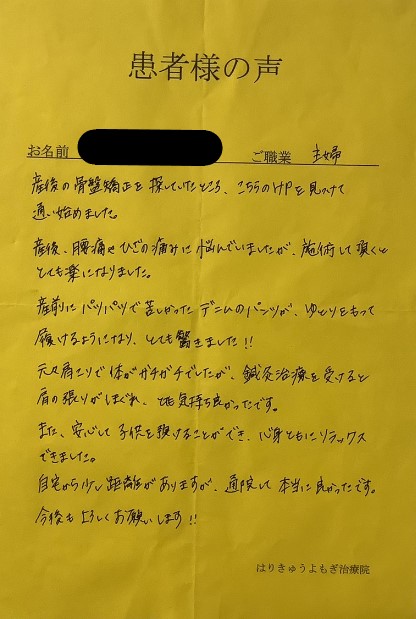 患者様の声
お名前 ご職業 主婦
産後の骨盤矯正を探していたところ、こちらのHPを見つけて
通い始めました。
産後、腰痛やひざの痛みに悩んでいましたが、施術して頂くと
とても楽になりました。
産前にパツパツで苦しかったデニムのパンツが、ゆとりをもって
履けるようになり、とても驚きました!!
元々肩こりで体がガチガチでしたが、鍼灸治療を受けると
肩の張りがほぐれ、とても気持ち良かったです。
また、安心して子供を預けることができ、心身ともにリラックス
できました。
自宅から少し距離がありますが、通院して本当に良かったです。
今後もよろしくお願いします!!
はりきゅうよもぎ治療院